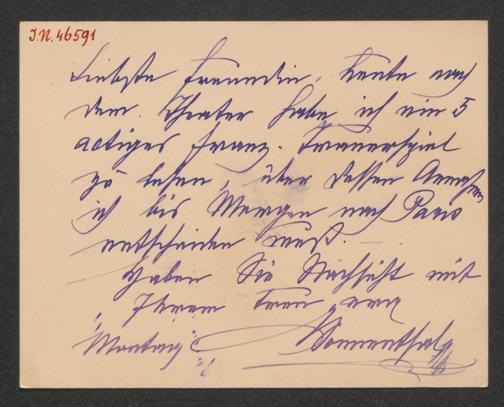 J.N. 46591
Liebste Freundin, heute nach
dem Theater habe ich ein 5
actiges franz. Trauerspiel
zu lesen, über dessen Annahme
ich bis Morgen nach Paris
entscheiden muß. —
Haben Sie Nachsicht mit
Ihrem treu
"Montag"
Sonnenthal